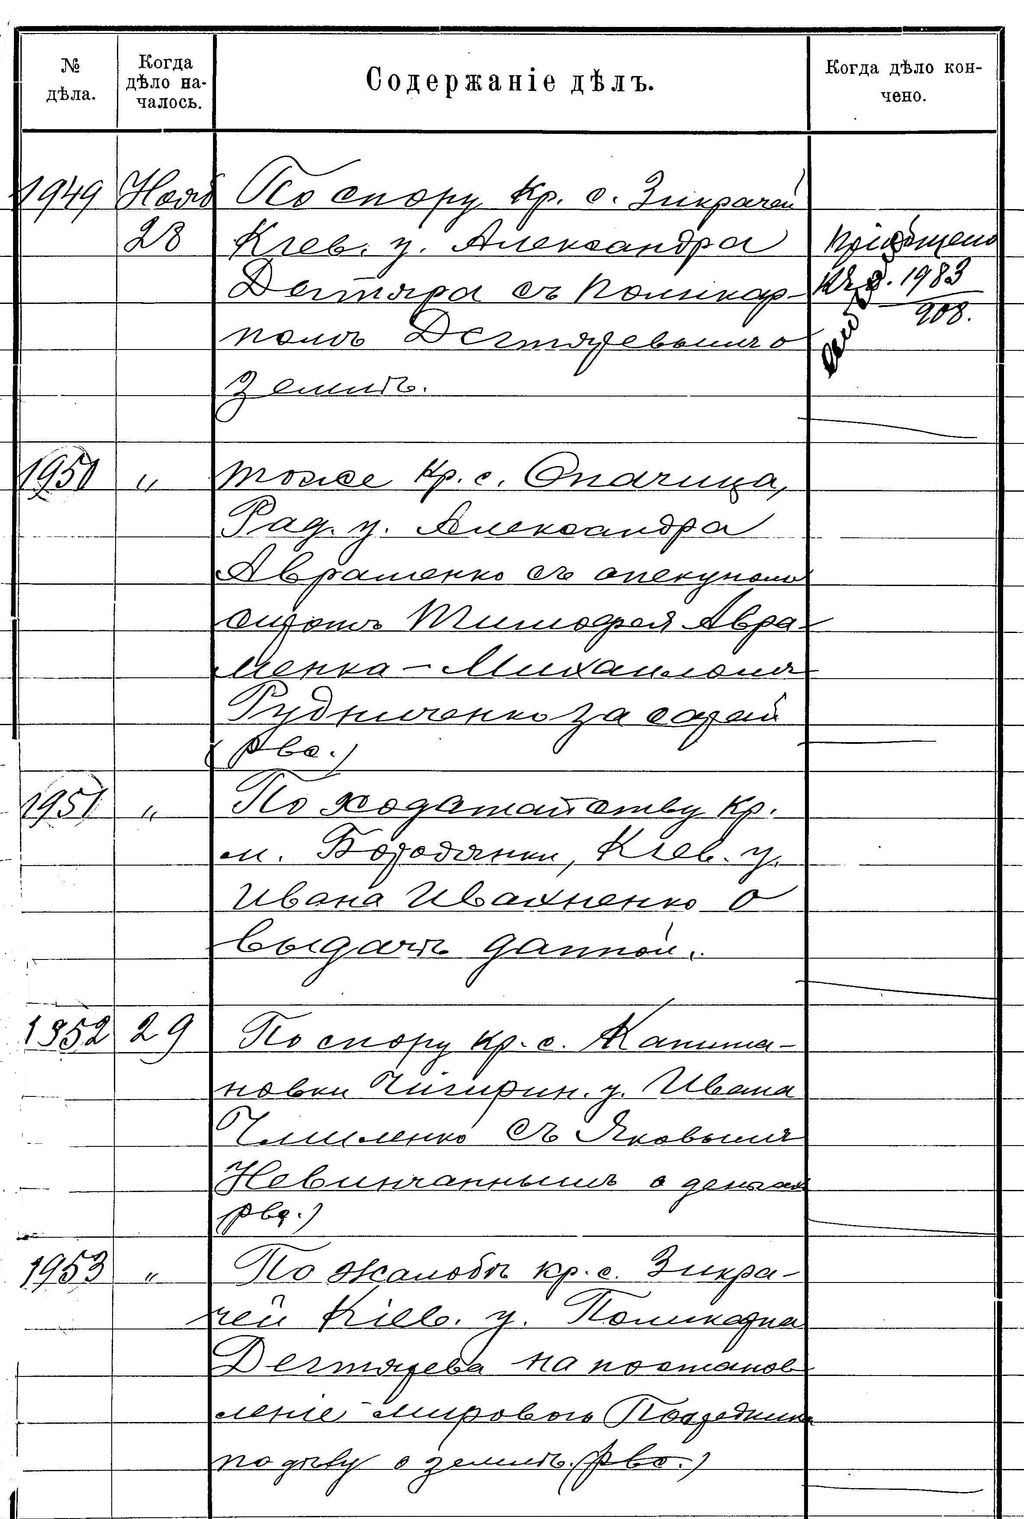 №
дѣла.
Когда
дѣло на-
чалось.
Содержаніе дѣлъ.
Когда дѣло кон-
чено.
1949 Нояб По спору кр. с. Зикрачей
28 Кіев. у. Александра
Дегтяра съ Поликар-
помъ Дегтяревымъ о
землѣ.
Пріобщено
къ д. 1983
908.
1950 " тоже кр. с. Опачица,
Рад. у. Александра
Авраменко съ опекуномъ
сиротъ Тимофея Авра-
менка - Михаиломъ
Рудниченко за сарай
(рво.)
1951 " По ходатайству кр.
м. Бородянки, Кіев. у.
Ивана Ивахненко о
выдачѣ данной.
1952 29 По спору кр. с. Капита-
новки Чигирин. у. Ивана
Чмиленко съ Яковымъ
Невинчаннымъ о деньгах
рво.)
1953 " По жалобѣ кр. с. Зикра-
чей Кіев. у. Поликарпа
Дегтярева на постанов-
леніе мирового Посредника
по дѣлу о землѣ. (рво.)